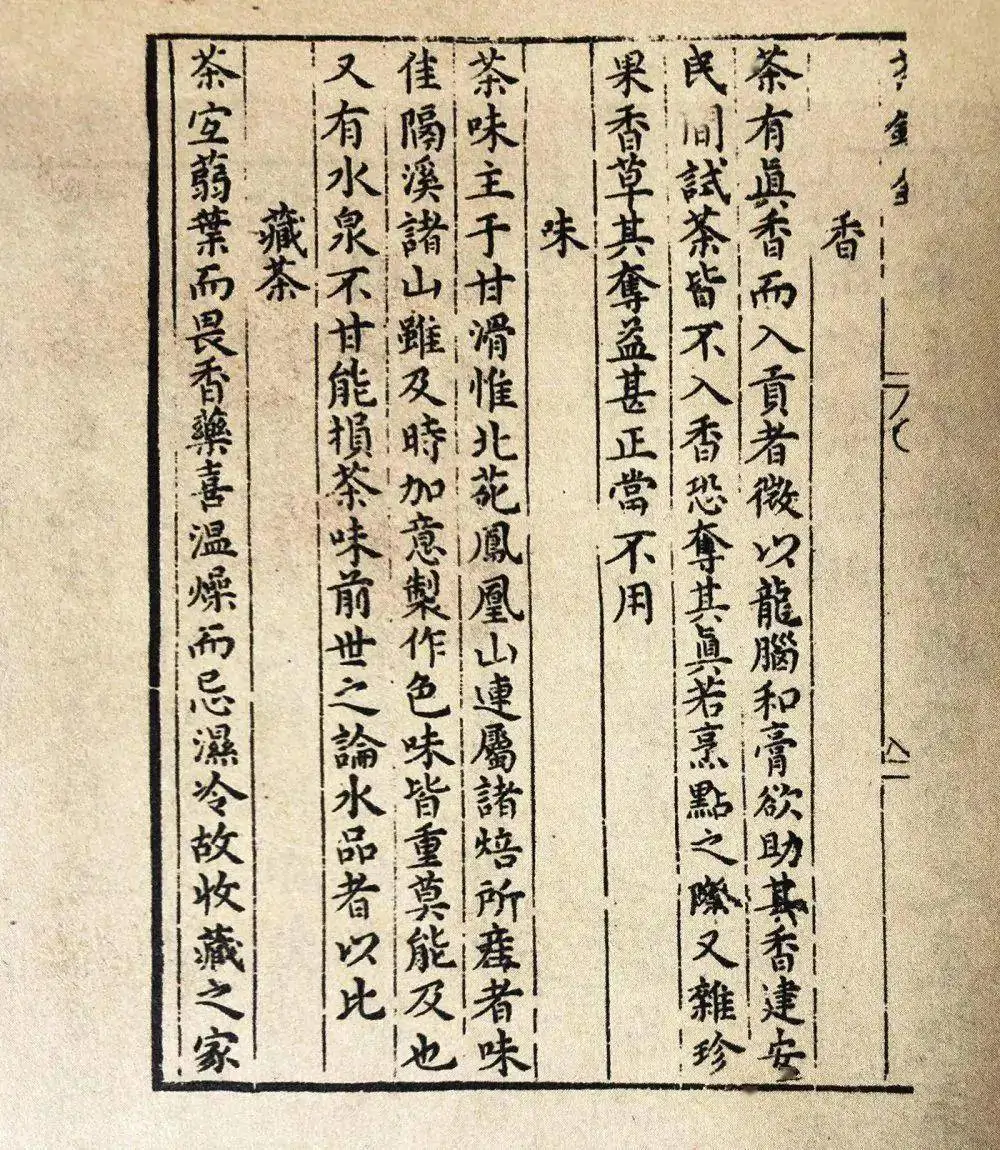 香
茶有眞香而入貢者微以龍腦和膏欲助其香建安
民間試茶皆不入香恐奪其眞若烹點之際又雜珍
果香草其奪益甚正當不用
味
茶味主于甘滑惟北苑鳳凰山連屬諸焙所産者味
佳隔溪諸山雖及時加意製作色味皆重莫能及也
又有水泉不甘能損茶味前世之論水品者以比
藏茶
茶宐蒻葉而畏香藥喜温燥而忌濕冷故收藏之家